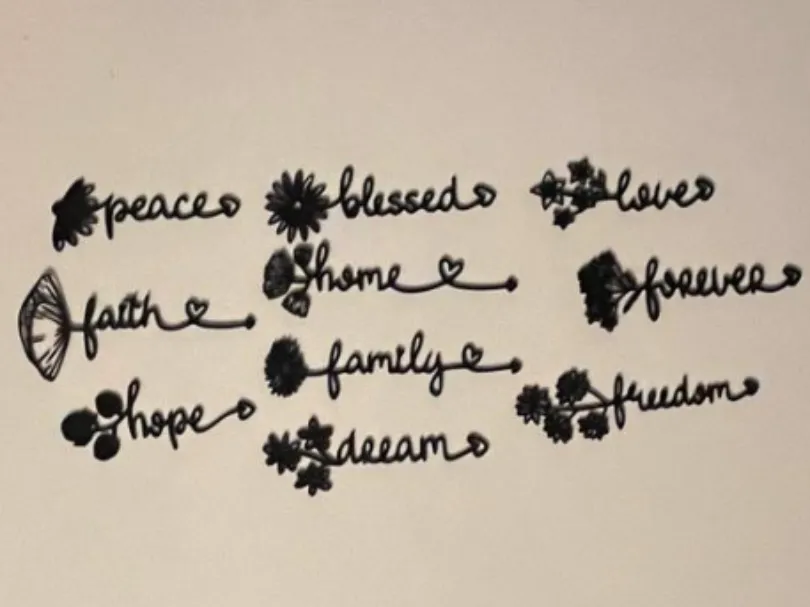 peace
faith
hope
blessed
home
family
dream
love
forever
freedom